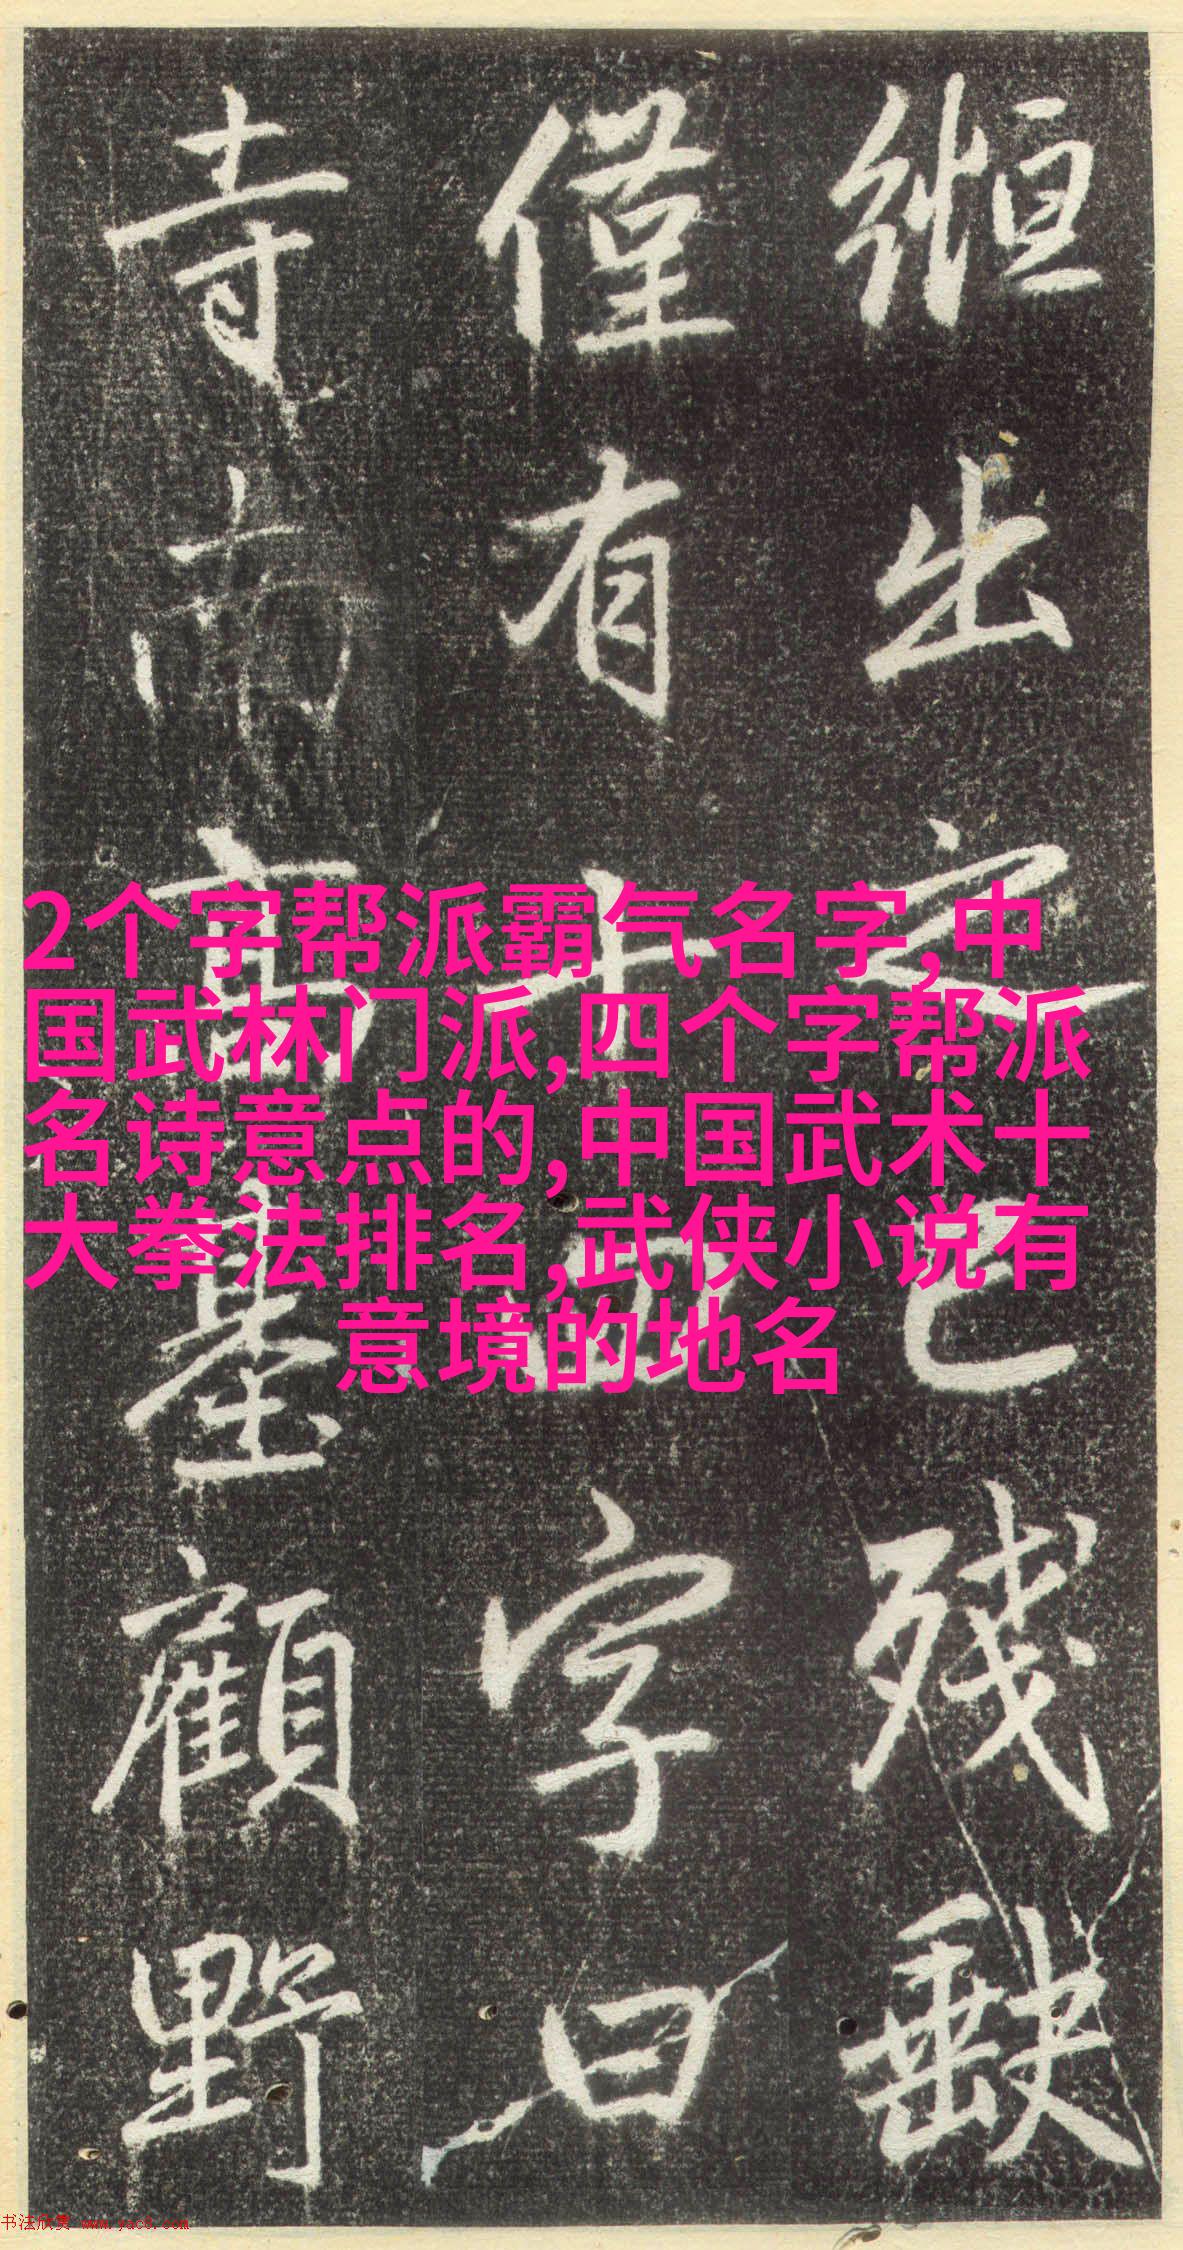 2个字帮派霸气名字,中
国武林门派,四个字帮派
名诗意点的,中国武术十
大拳法排名,武侠小说有
意境的地名
緪出之已殘缺
僅有上四字曰
寺南高基顧野
书法欣赏 www.yac8.com